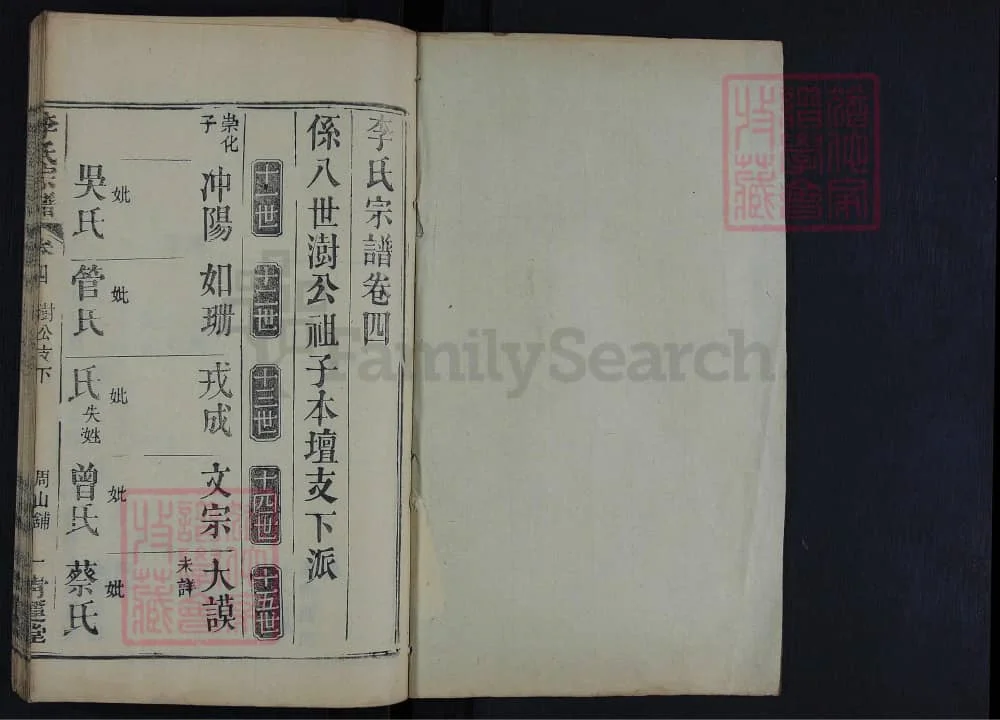 李氏宗譜卷四
係八世澍公祖子本壇支下派
十一世
十二世
十三世
十四世
十五世
崇化子
冲陽
如珊
戎成
文宗
大謨
未詳
妣
吳氏
妣
管氏
妣
氏失姓
妣
曾氏
妣
蔡氏
李氏宗譜
卷四
澍公支下
周山鋪
一
FamilySearch